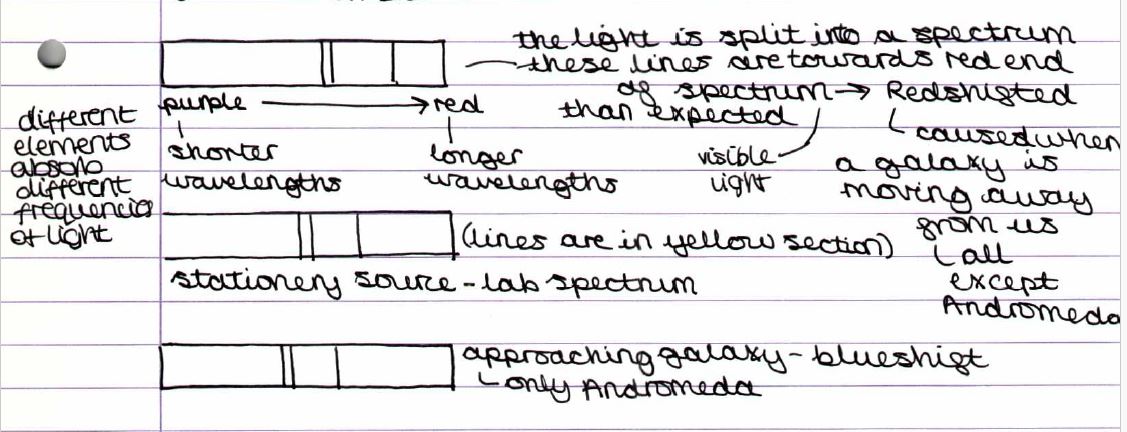 the light is split into a spectrum
these lines are towards red end
of spectrum → Redshifted
than expected
purple → red
shorter
wavelengths
longer
wavelengths
visible
light
caused when
a galaxy is
moving away
from us
all
except
Andromeda
different
elements
absorb
different
frequencies
of light
(lines are in yellow section)
stationery source - lab spectrum
approaching galaxy - blueshift
only Andromeda